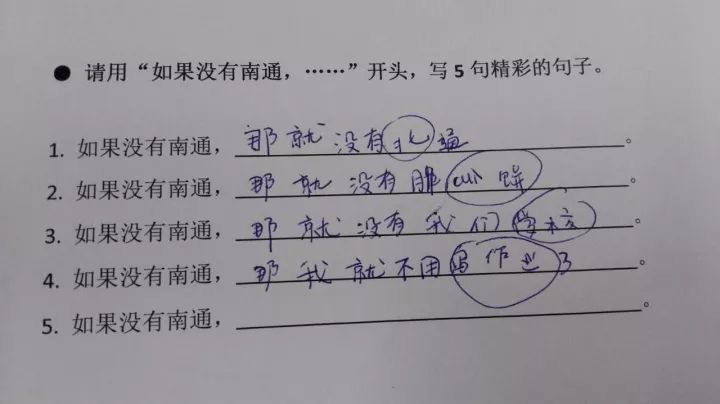 ● 请用“如果没有南通，……”开头，写 5 句精彩的句子。
1. 如果没有南通，那就没有北通。
2. 如果没有南通，那就没有脆饼。
3. 如果没有南通，那就没有我们学校。
4. 如果没有南通，那我就不用写作业了。
5. 如果没有南通，。